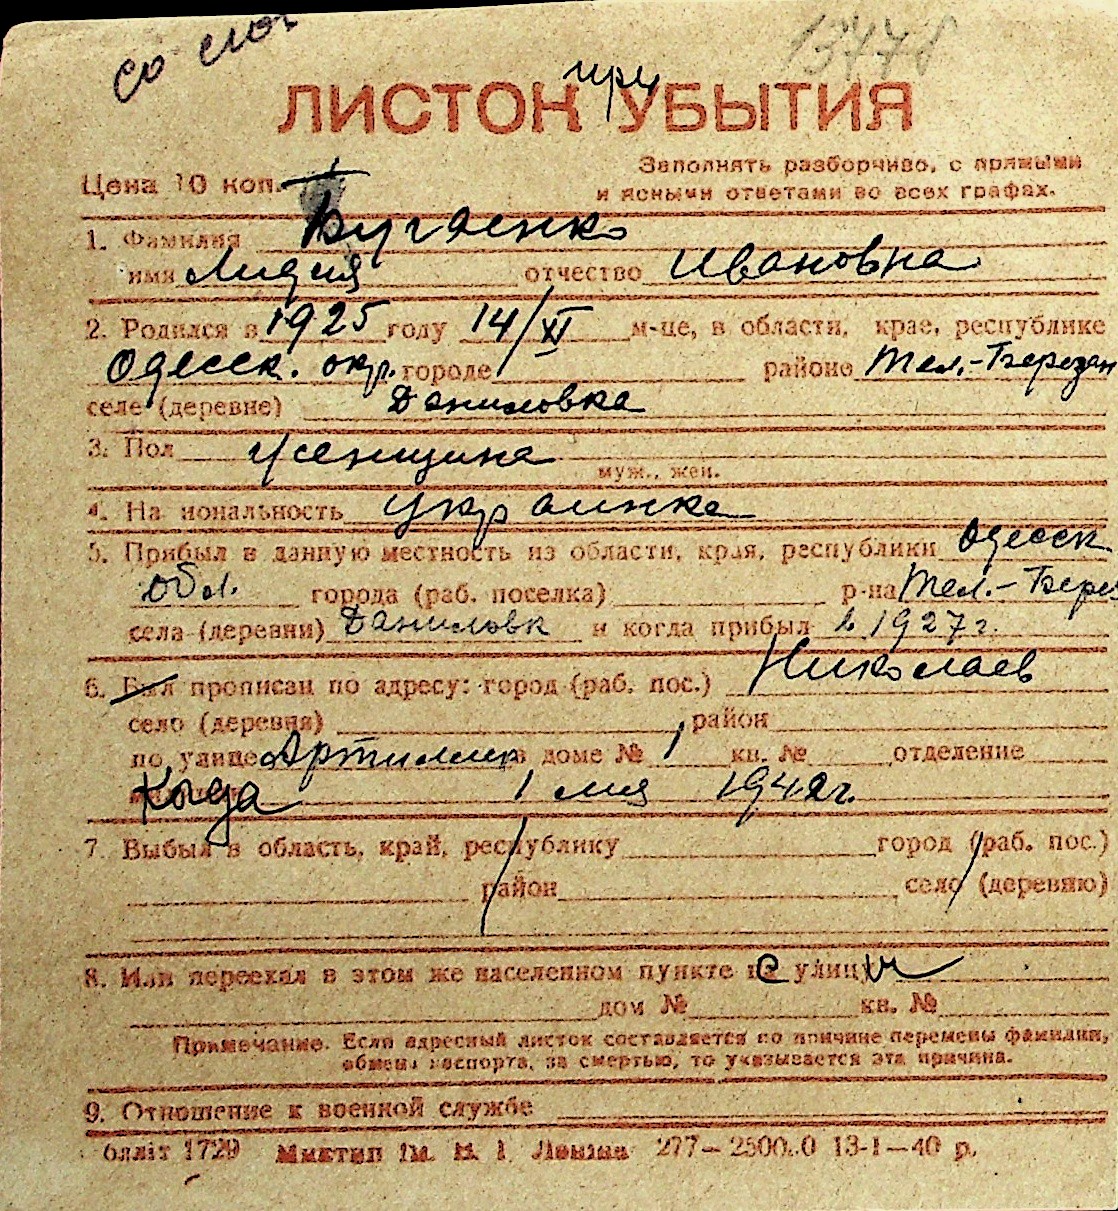 со слов
13478
при
ЛИСТОК УБЫТИЯ
Цена 10 коп.
Заполнять разборчиво, с прямыми
и ясными ответами во всех графах.
1. Фамилия Бугаенко
имя Лидия отчество Ивановна
2. Родился в 1925 году 14/XI м-це, в области, крае, республике
Одесск. окр. городе районе Тил.-Березан
селе (деревне) Даниловка
3. Пол женщина
муж., жен.
4. На иональность украинка
5. Прибыл в данную местность из области, края, республики Одесск
обл. города (раб. поселка) р-на Тил.-Берез
села (деревни) Даниловк и когда прибыл в 1927 г.
6. Был прописан по адресу: город (раб. пос.) Николаев
село (деревня) район
по улице Артиллер в доме № 1 кв. № отделение
Когда 1 мая 1942 г.
7. Выбыл в область, край, республику город (раб. пос.)
район село (деревню)
8. Или переехал в этом же населенном пункте с улицы
дом № кв. №
Примечание. Если адресный листок составляется по причине перемены фамилии,
обмена паспорта, за смертью, то указывается эта причина.
9. Отношение к военной службе
блліт 1729 Миктип Ім. В. І. Леніна 277—2500.0 13-1—40 р.